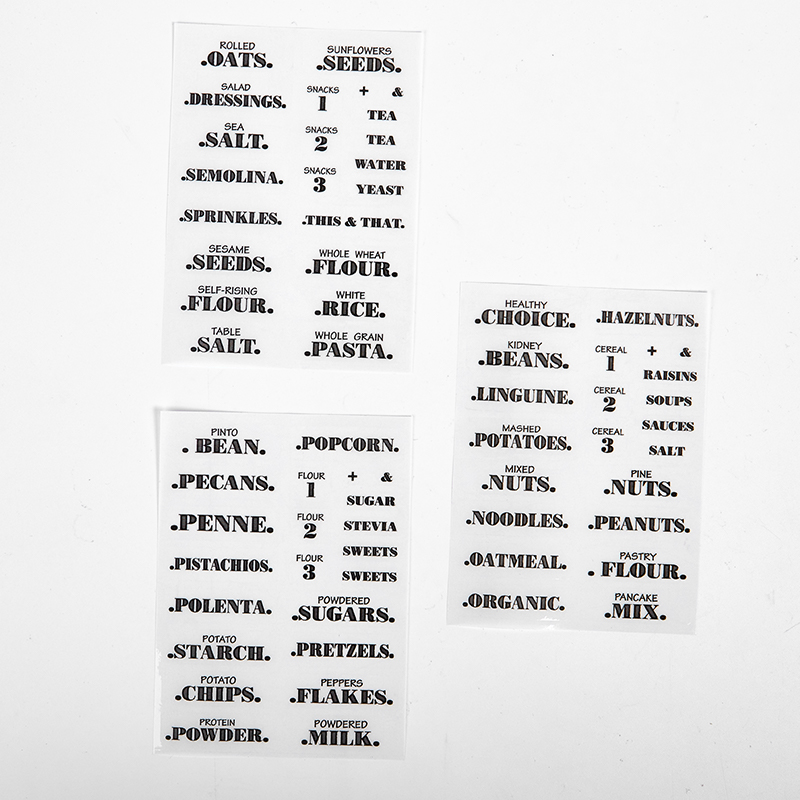 ROLLED
.OATS.
SALAD
.DRESSINGS.
SEA
.SALT.
.SEMOLINA.
.SPRINKLES.
SESAME
.SEEDS.
SELF-RISING
.FLOUR.
TABLE
.SALT.
SUNFLOWERS
.SEEDS.
SNACKS
1
SNACKS
2
SNACKS
3
+ &
TEA
TEA
WATER
YEAST
.THIS & THAT.
WHOLE WHEAT
.FLOUR.
WHITE
.RICE.
WHOLE GRAIN
.PASTA.
HEALTHY
.CHOICE.
KIDNEY
.BEANS.
.LINGUINE.
MASHED
.POTATOES.
MIXED
.NUTS.
.NOODLES.
.OATMEAL.
.ORGANIC.
.HAZELNUTS.
CEREAL
1
CEREAL
2
CEREAL
3
+ &
RAISINS
SOUPS
SAUCES
SALT
PINE
.NUTS.
.PEANUTS.
PASTRY
. FLOUR.
PANCAKE
.MIX.
PINTO
. BEAN.
.PECANS.
.PENNE.
.PISTACHIOS.
.POLENTA.
POTATO
.STARCH.
POTATO
.CHIPS.
PROTEIN
.POWDER.
.POPCORN.
FLOUR
1
FLOUR
2
FLOUR
3
+ &
SUGAR
STEVIA
SWEETS
SWEETS
POWDERED
.SUGARS.
.PRETZELS.
PEPPERS
.FLAKES.
POWDERED
.MILK.